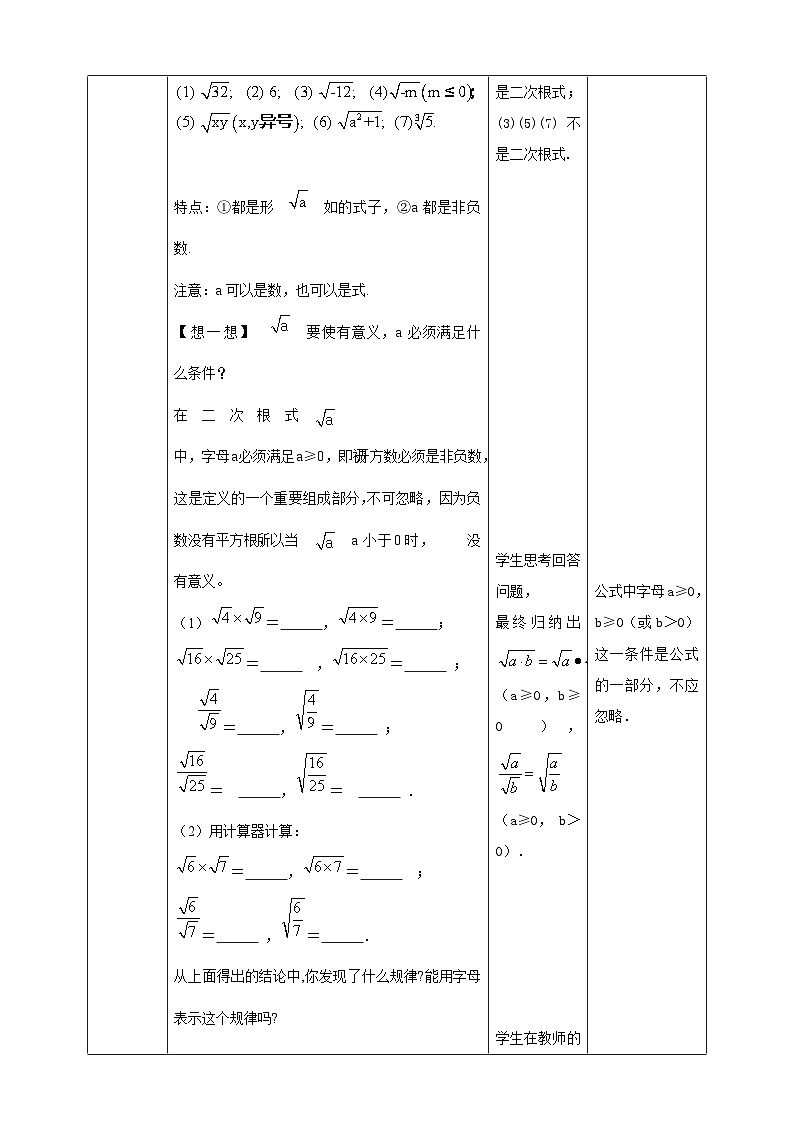 (1) √32; (2) 6; (3) √-12; (4)√-m(m≤0);
(5) √xy(x,y异号); (6) √a²+1; (7)³√5.
特点:①都是形 √a 如的式子,②a 都是非负
数.
注意:a 可以是数,也可以是式.
【想一想】 √a 要使有意义,a 必须满足什
么条件?
在 二 次 根 式 √a
中,字母a必须满足a≥0,即被开方数必须是非负数,
这是定义的一个重要组成部分,不可忽略,因为负
数没有平方根所以当 √a a 小于0时, 没
有意义。
(1) √4×√9=_____,√4×9=_____;
√16×√25=_____ ,√16×25=_____ ;
√4/√9=_____,√(4/9)=_____ ;
√16/√25= _____,√(16/25)= _____ .
(2)用计算器计算:
√6×√7=_____,√6×7=_____ ;
√6/√7=_____ ,√(6/7)=_____.
从上面得出的结论中,你发现了什么规律?能用字母
表示这个规律吗?
是二次根式;
(3)(5)(7) 不
是二次根式.
学生思考回答
问题,
最终归纳出
√a·b=√a●.
(a≥0,b≥
0 ) ,
√a/√b=√(a/b)
(a≥0, b>
0).
学生在教师的
公式中字母a≥0,
b≥0(或b>0)
这一条件是公式
的一部分,不应
忽略.